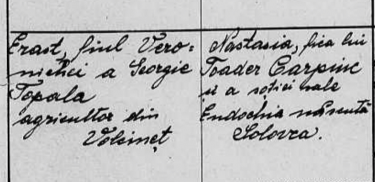 Erast, fiul Vero-
nichii a George
Topala
agricultor din
Volcineț
Nastasia, fica lui
Toader Carpinc
și a soției sale
Eudochia născută
Solovza.